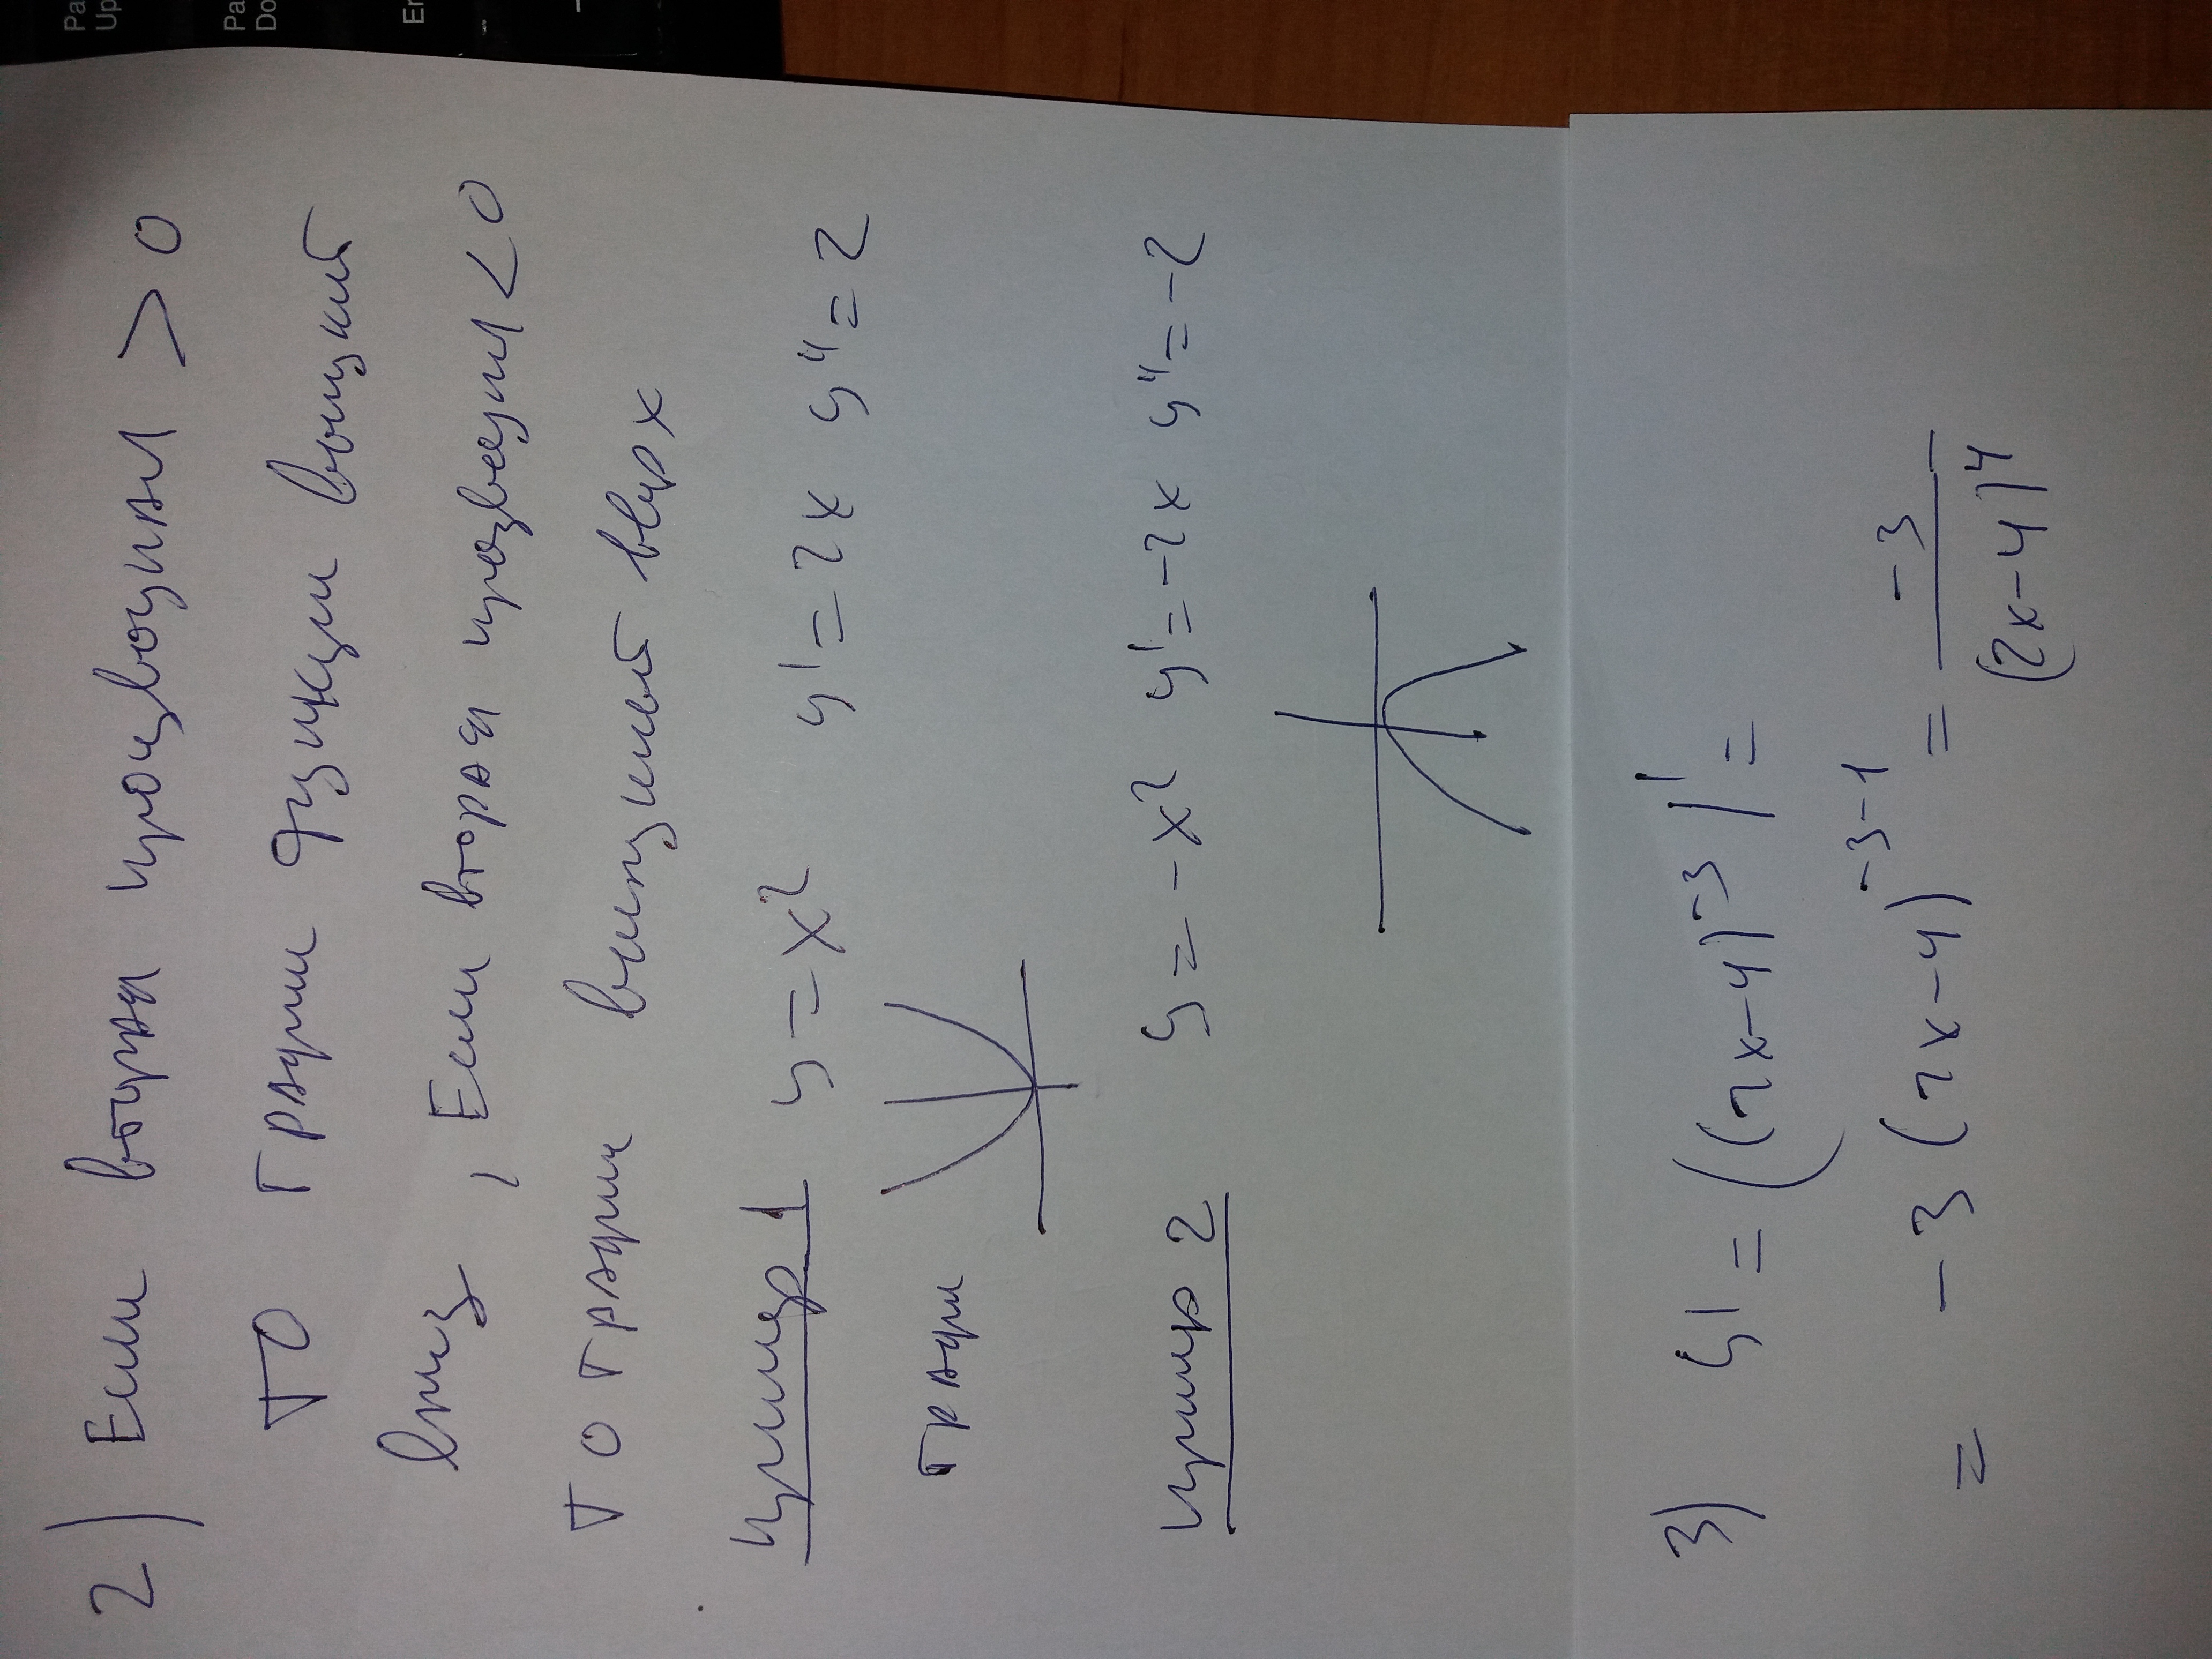 2) Если вторая производная > 0
то график функции выпуклый
вниз, Если вторая производная < 0
то график выпуклый вверх
пример 1 y = x² y' = 2x y'' = 2
график
пример 2 y = -x² y' = -2x y'' = -2
3) y' = ((2x-4)⁻³)' =
= -3(2x-4)⁻³⁻¹ = -3/(2x-4)⁴
Pa
Up
Pa
Do
En